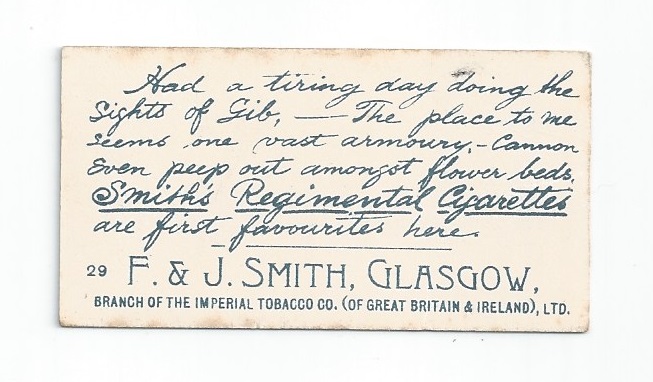 Had a tiring day doing the
sights of Gib, — The place to me
seems one vast armoury, - Cannon
even peep out amongst flower beds.
Smith's Regimental Cigarettes
are first favourites here.
29 F. & J. SMITH, GLASGOW,
BRANCH OF THE IMPERIAL TOBACCO CO. (OF GREAT BRITAIN & IRELAND), LTD.